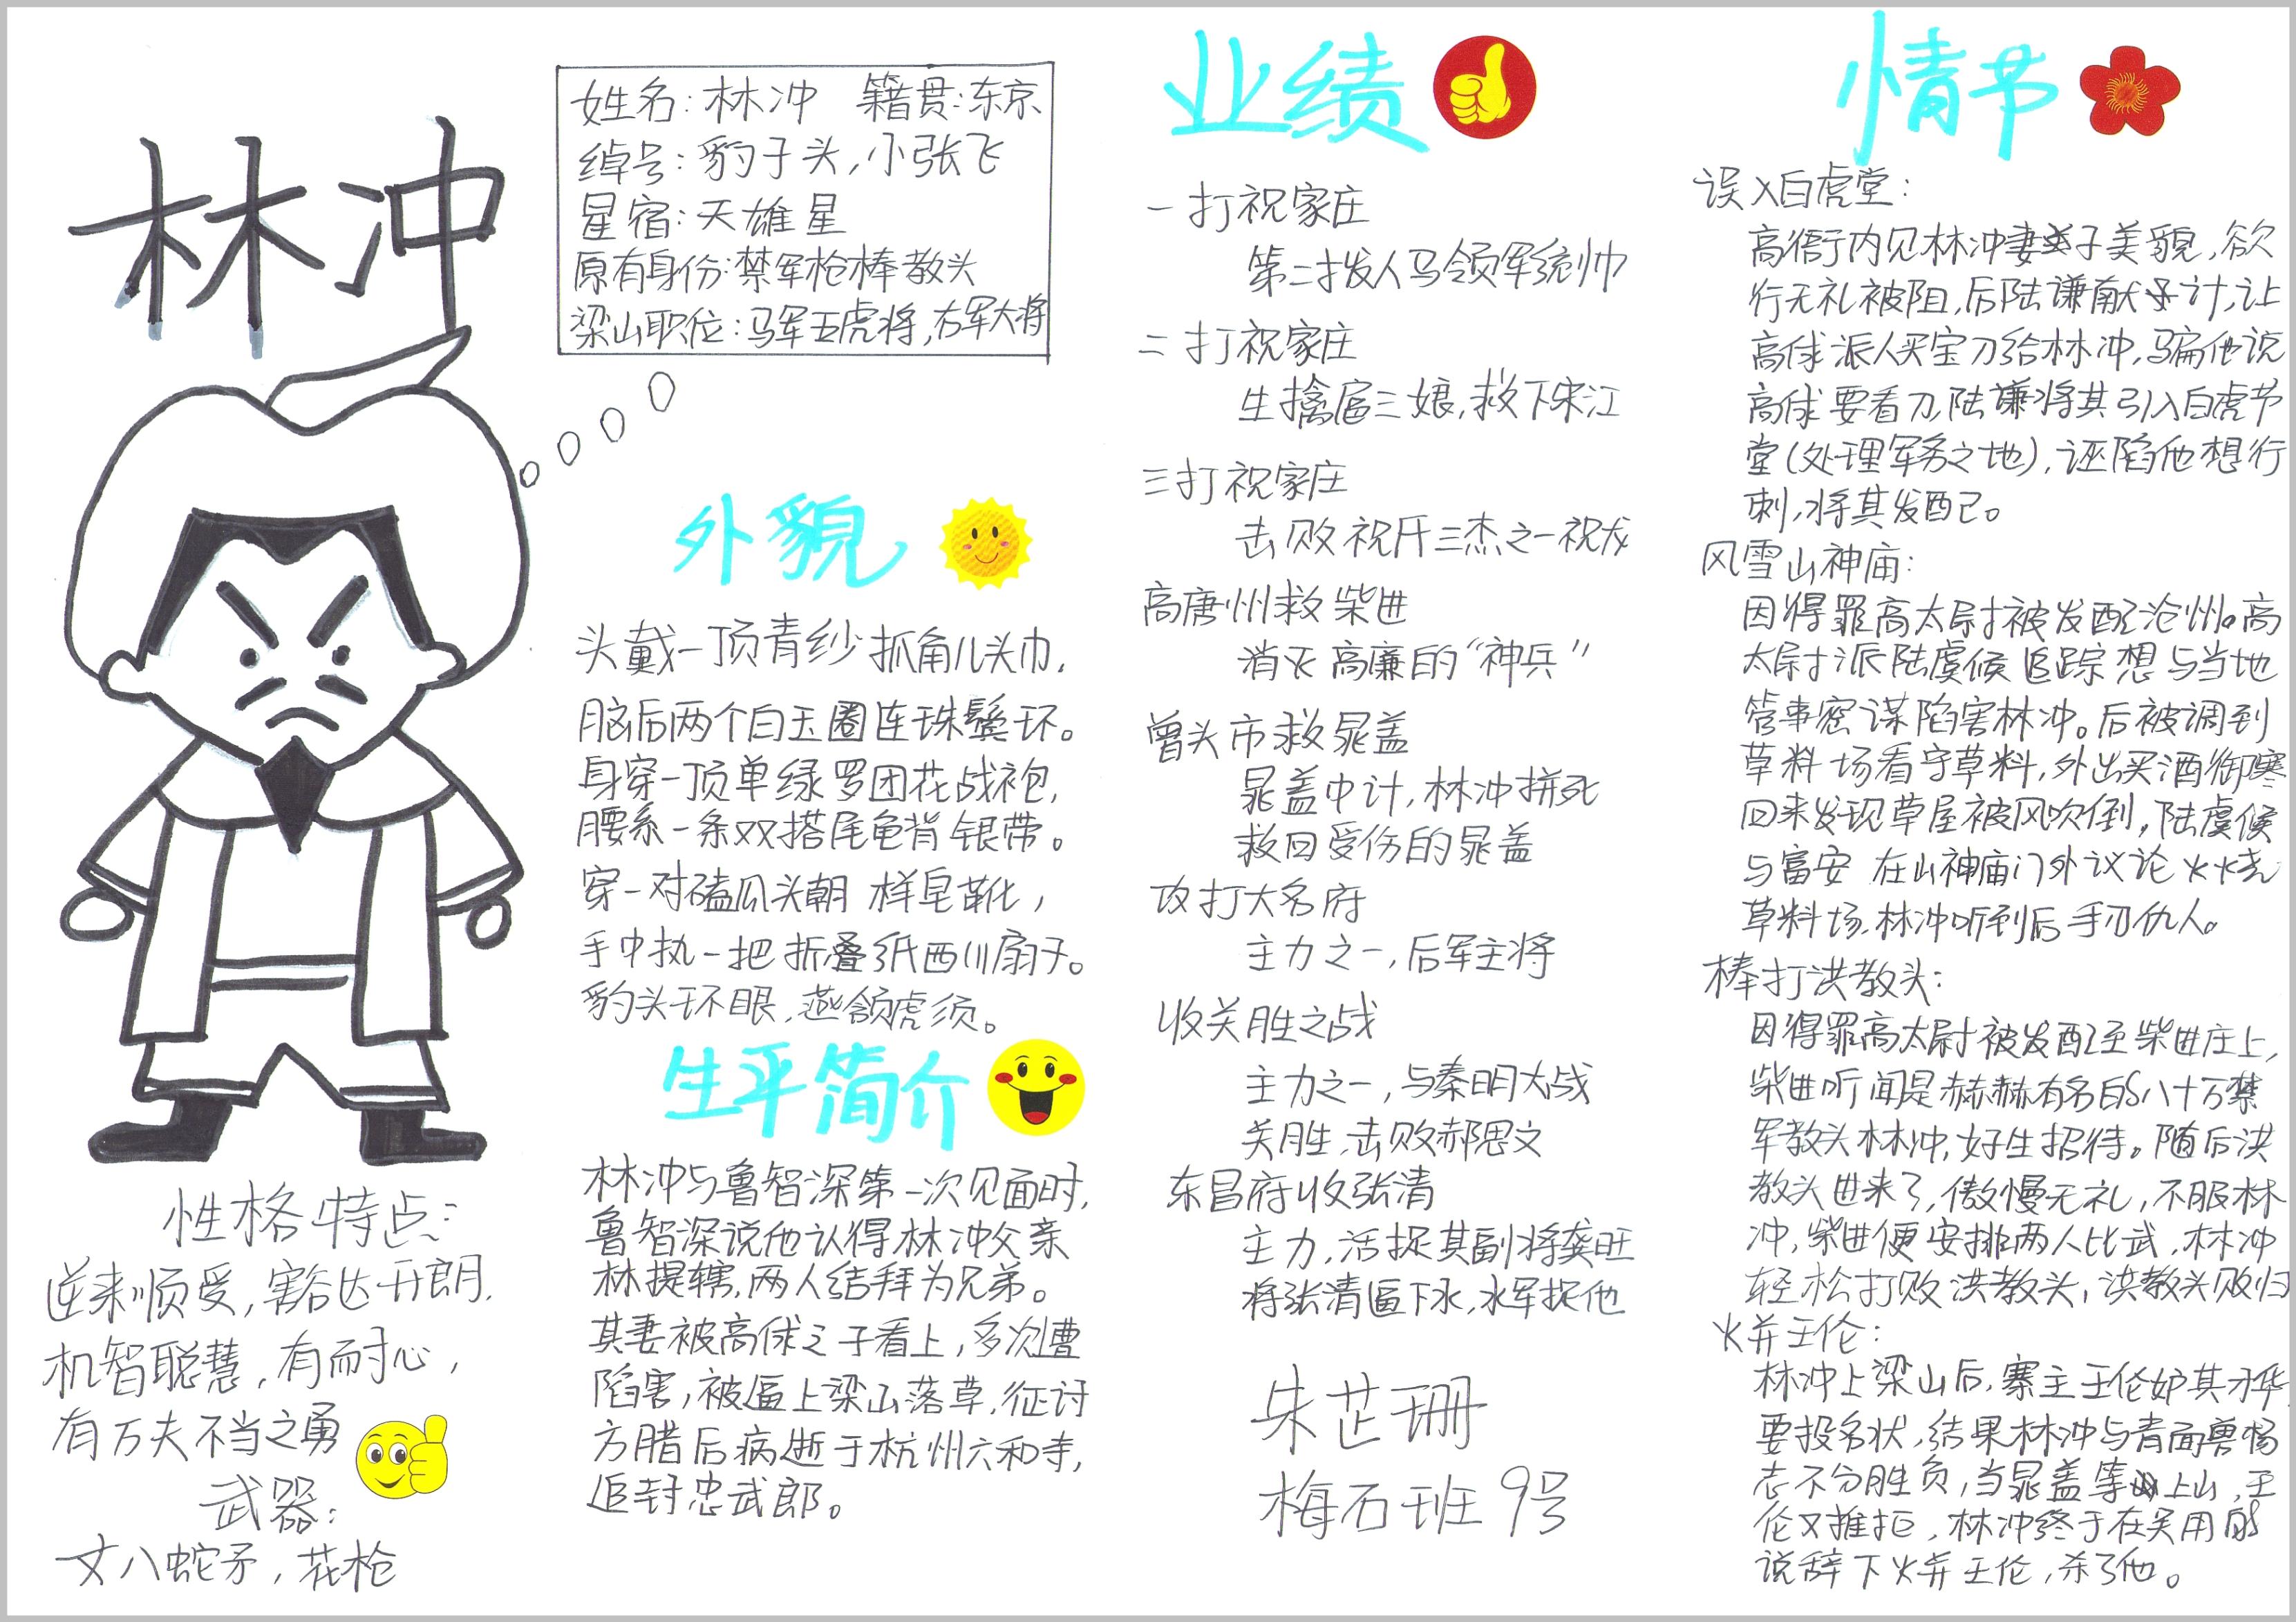 林冲
姓名：林冲　籍贯：东京
绰号：豹子头，小张飞
星宿：天雄星
原有身份：禁军枪棒教头
梁山职位：马军五虎将，右军大将
外貌
头戴一顶青纱抓角儿头巾，
脑后两个白玉圈连珠鬓环。
身穿一顶单绿罗团花战袍，
腰系一条双搭尾龟背银带。
穿一对磕瓜头朝样皂靴，
手中执一把折叠纸西川扇子。
豹头环眼，燕颔虎须。
生平简介
林冲与鲁智深第一次见面时，
鲁智深说他认得林冲父亲
林提辖，两人结拜为兄弟。
其妻被高俅之子看上，多次遭
陷害，被逼上梁山落草，征讨
方腊后病逝于杭州六和寺，
追封忠武郎。
性格特点：
逆来顺受，豁达开朗，
机智聪慧，有耐心，
有万夫不当之勇
武器：
丈八蛇矛，花枪
业绩
一打祝家庄
第二拨人马领军统帅
二打祝家庄
生擒扈三娘，救下宋江
三打祝家庄
击败祝氏三杰之一祝龙
高唐州救柴进
消灭高廉的“神兵”
曾头市救晁盖
晁盖中计，林冲拼死
救回受伤的晁盖
攻打大名府
主力之一，后军主将
收关胜之战
主力之一，与秦明大战
关胜，击败郝思文
东昌府收张清
主力，活捉其副将龚旺
将张清逼下水，水军捉他
朱芷珊
梅石班9号
情节
误入白虎堂：
高衙内见林冲妻子美貌，欲
行无礼被阻，后陆谦献计，让
高俅派人买宝刀给林冲，骗他说
高俅要看刀，陆谦将其引入白虎节
堂（处理军务之地），诬陷他想行
刺，将其发配。
风雪山神庙：
因得罪高太尉被发配沧州。高
太尉派陆虞候追踪想与当地
管事密谋陷害林冲。后被调到
草料场看守草料，外出买酒御寒
回来发现草屋被风吹倒，陆虞候
与富安在山神庙门外议论火烧
草料场，林冲听到后手刃仇人。
棒打洪教头：
因得罪高太尉被发配至柴进庄上，
柴进听闻是赫赫有名的八十万禁
军教头林冲，好生招待。随后洪
教头进来了，傲慢无礼，不服林
冲，柴进便安排两人比武，林冲
轻松打败洪教头，洪教头败归
火并王伦：
林冲上梁山后，寨主王伦妒其才华
要投名状，结果林冲与青面兽杨
志不分胜负，当晁盖等上山，王
伦又推拒，林冲终于在吴用的
说辞下火并王伦，杀了他。